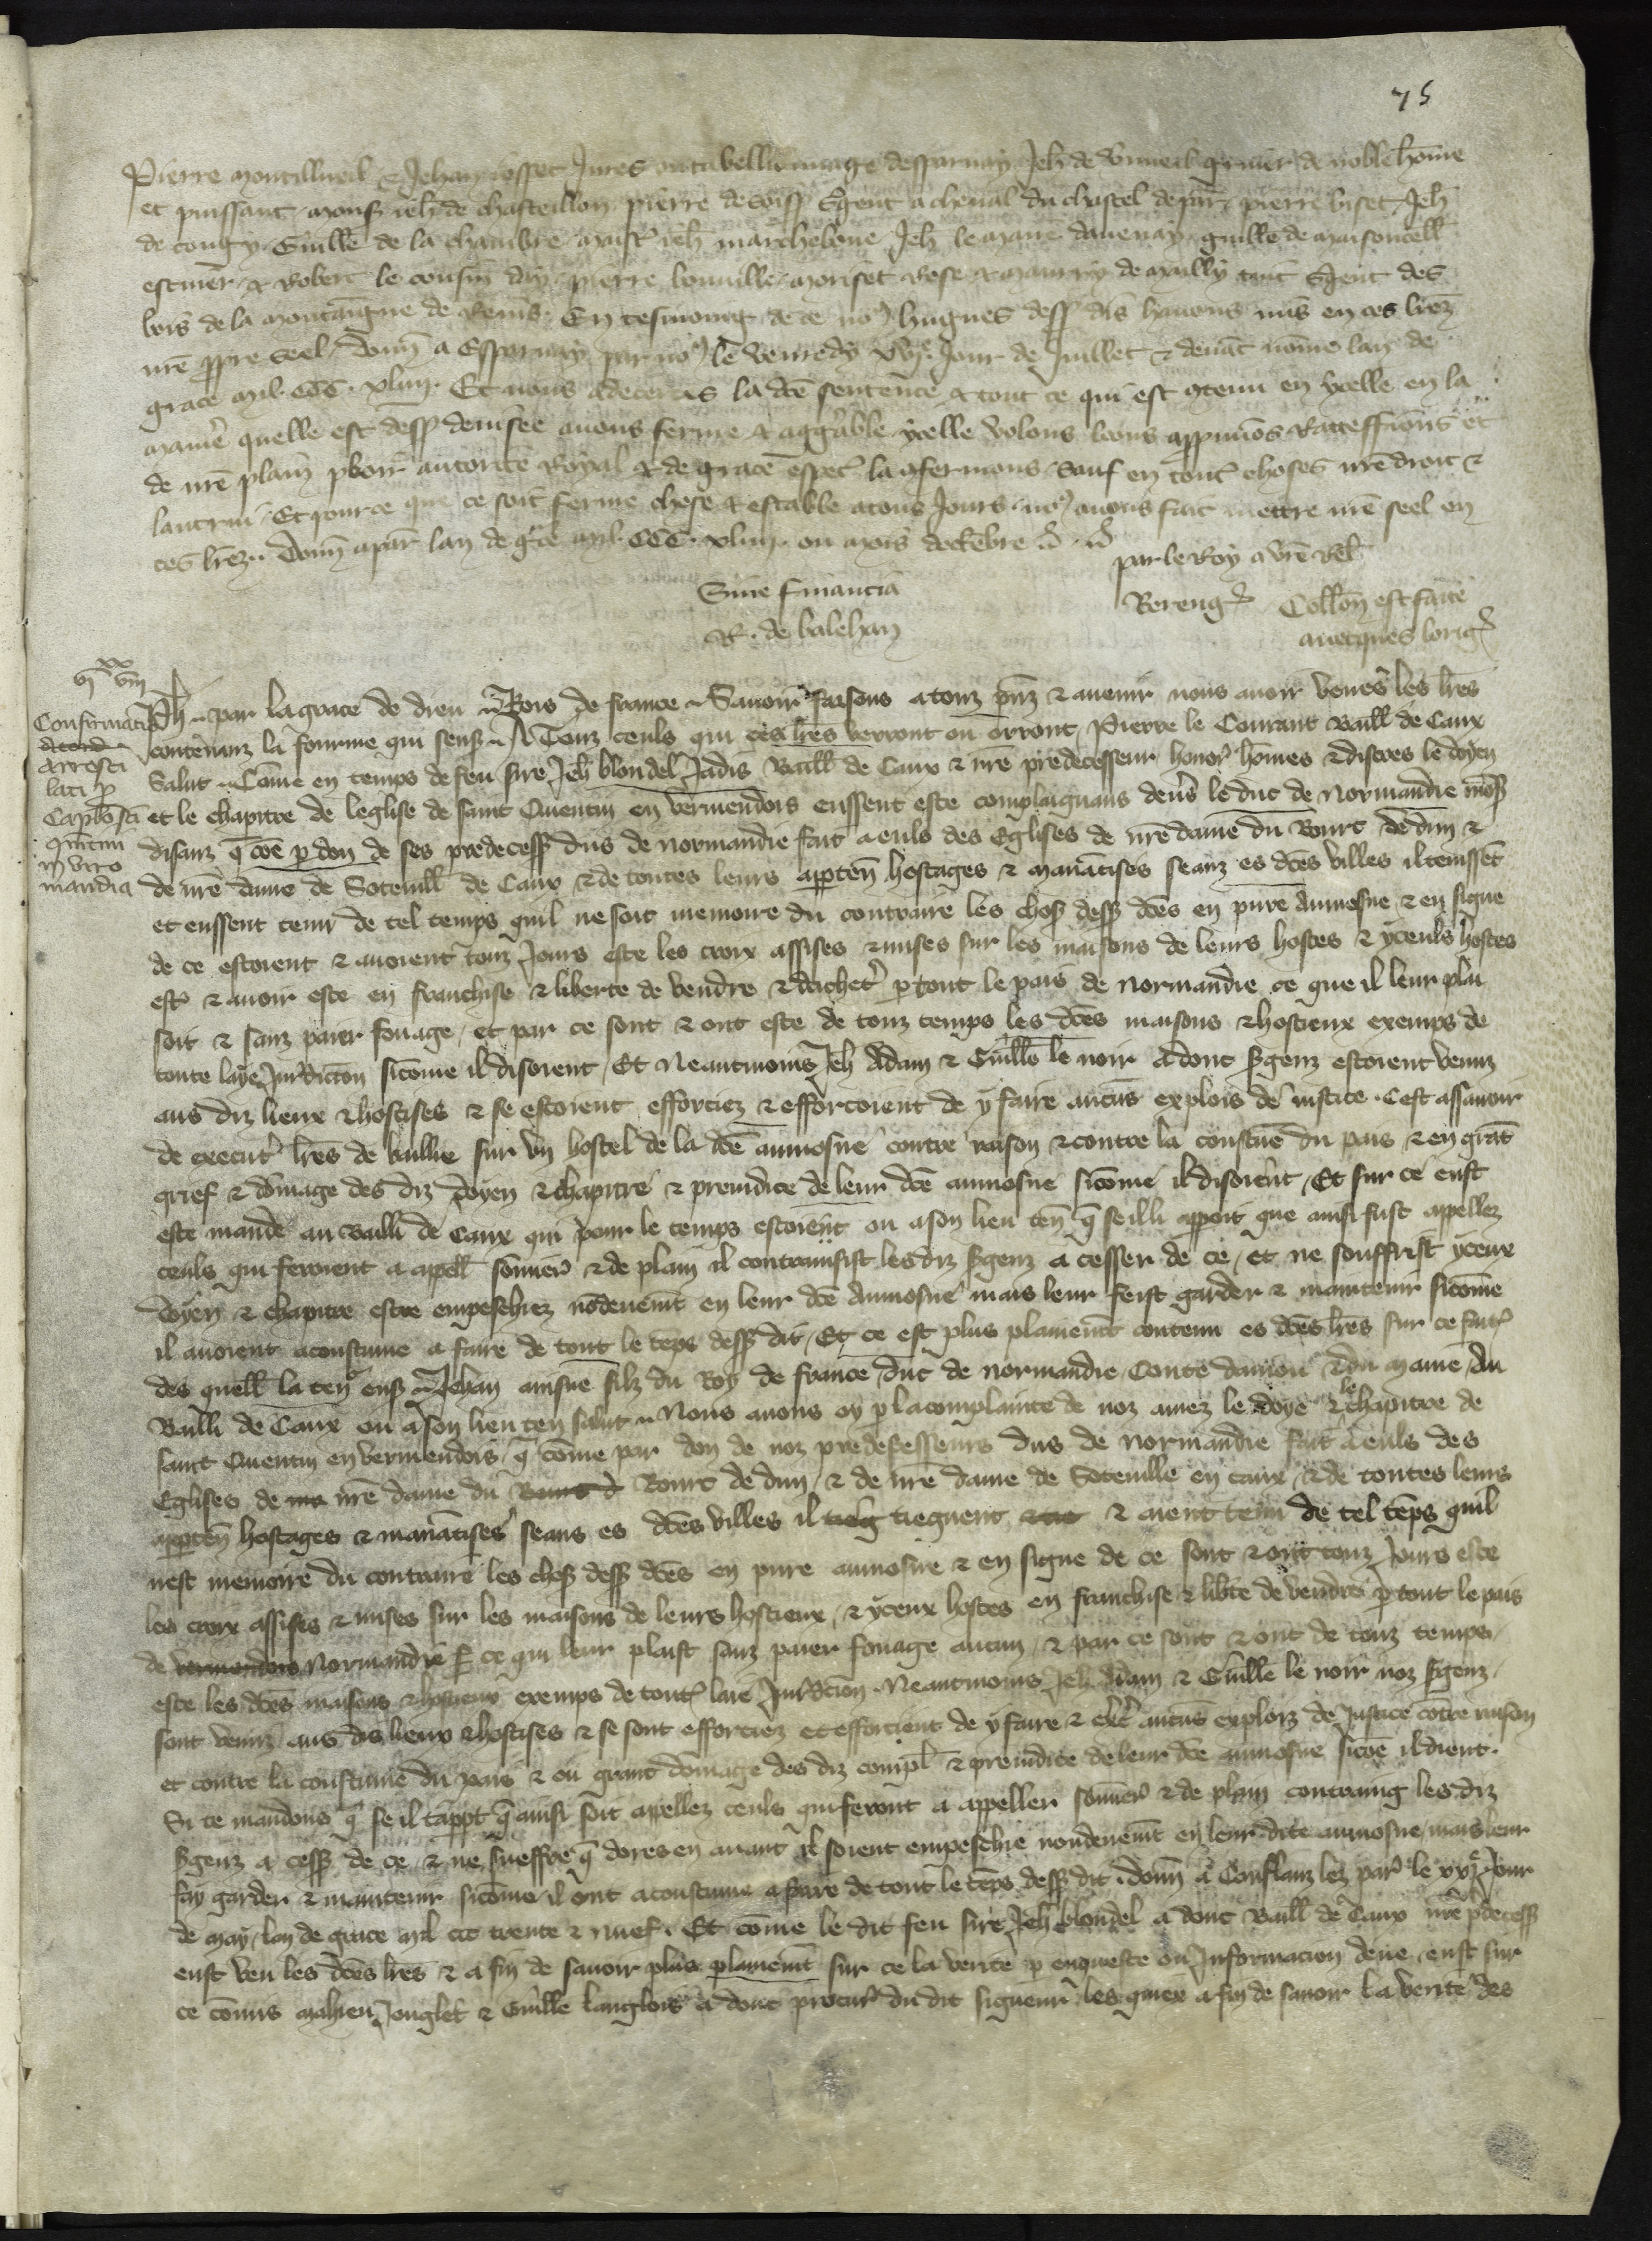 75
Pierre Jehan Josset Jures desparnay Jeh de gruier de noble home
et puissant monss Jeh de chasteillon pierre de soiss sgent a cheval du chastel de par pierre biset Jeh
de congy Guille de la chambre maist Jeh marchebone Jeh le maire davenay guille de maisoncell
escuier & Robert le cousin day pierre moriset Rose & de mailly tuit sgent des
bois de la montaigne de Reins En tesmoing de ce no9 hugues dess dis havons mis en ces lrez
nre ppre seel Donn a Espernay par no9 le venredy jour de Juillet & devant nomme lan de
grace mil CCC xliiii Et nous adecertes la dce sentence & tout ce qui est 9tenu en ycelle en la
maniere quelle est dess devisee avons ferme & aggreable ycelle volons loons appvuos Ratteffions et
de nre plain pooir auctorite Royal & de grace espec la 9fermons Sauf en tout choses nre droit &
lautrui Et pource que ce soit ferme chose & estable atous Jours no9 avons fait mettre nre seel en
ces lrez Donn apar lan de gce mil CCC xliiii ou mois doctebre
par le Roy a vre Rel
Sine financia
Bereng Collon est faite
R. de balehan
avecques lorig
vi xx viii
Ph par la grace de dieu Rois de france Savoir faisons a touz pnz & avenir nous avoir veues les lres
Confirmatio
contenanz la fourme qui sensz A Touz ceuls qui ces lres verront ou orront Pierre le Courant Baill de Caux
arresti
Salut Come en temps de feu sire Jeh blondel Jadis Baill de Caux & nre predecesseur honor homes & discres le doyen
lati p
et le chapitre de leglise de saint Quentin en vermendois eussent este complaignans devs le duc de Normandie moss
Capl'o sci
disanz q coe p don de ses predecess dus de normandie fait a euls des Eglises de nre dame du Bourc de dun &
quintini
in viro
mandia
de nre dame de Sotevill de Caux & de toutes leurs apten hostages & manatises seanz es dces villes il tenisset
et eussent tenu de tel temps quil ne soit memoire du contraire les chos dess dces en pure Aumosne & en signe
de ce estoient & avoient touz Jours este les croix assises & mises sur les maisons de leurs hostes & yceuls hostes
est & avoir este en franchise & liberte de vendre & dachet p tout le pais de normandie ce que il leur plai
soit & sanz paier fouage et par ce sont & ont este de touz temps les dces maisons & hostieux exemps de
toute laye Juridicton sicome il disoient Et Neantmoins Jeh Adam & Guille le noir adont sgenz estoient venuz
aus diz lieux & hostises & se estoient efforciez & efforcoient de y faire aucus explois de iustice Cest assavoir
de execut lres de baillie sur un hostel de la dce aumosne contre raison & contre la coustue du pais & en grat
grief & domage des diz doyen & chapitre & preiudice de leur dce aumosne sicome il disoient Et sur ce eust
este mande au bailli de Caux qui pour le temps estoient ou a son lieu ten q se illi apparoit que ainsi fust apellez
ceuls qui feroient a apell sommer & de plain il contrainsist les diz sgenz a cesser de ce et ne souffrist yceux
doyen & chapitre estre empeschiez nodevemt en leur dce Aumosne mais leur feist garder & maintenir sicome
il avoient acoustume a faire de tout le teps dess dit Et ce est plus plainemt contenu es dces lres sur ce fait
des quell la ten ensz Jehan ainsne filz du Roy de france duc de normandie Conte daniou & du maine Au
Bailli de Caux ou a son lieu ten salut Nous avons oy p la complainte de noz amez le doye & le chapitre de
saint Quentin en vermendois q come par don de noz predecesseurs dus de normandie fait a euls des
Eglises de nre dame du Bourc de dun & de nre dame de Soteville en caux & de toutes leurs
apten hostages & manatises seans es dces villes il tiegnent & aient tenu de tel teps quil
nest memoire du contraire les chos dess dces en pure aumosne & en signe de ce sont & ont touz Jours este
les croix assises & mises sur les maisons de leurs hostieux & yceux hostes en franchise & libte de vendre p tout le pais
de vermendois Normandie ce qui leur plaist sanz paier fouage aucun & par ce sont & ont de touz temps
este les dces maisons & hostieux exemps de tout laie Juridicion Neantmoins Jeh Adam & Guille le noir noz sgenz
sont venuz aus dis lieux & hostises & se sont efforciez et efforcient de y faire & aucus explois de Justice cotre raison
et contre la coustume du pais & ou grant domage des diz compl & preiudice de leur dce aumosne sicoe il dient
Si te mandons q se il tappt q ainsi soit apellez ceuls qui feront a appeller sommer & de plain contraing les diz
sgenz a cess de ce & ne sueffre q dores en avant il soient empeschie nondevemt en leur dite aumosne mais leur
fay garder & maintenir sicome il ont acoustume a faire de tout le teps dess dit donn a Conflanz lez par le xxj Jour
de may lan de grace mil ccc trente & nuef Et come le dit feu sire Jeh blondel a dont Baill de Caux nre predecess
eust veu les dces lres & a fin de savoir plus plainemt sur ce la verite p enqueste ou Informacion deue eust sur
ce comis mahieu Jouglet & Guille langlois a dont procur du dit signeur les quiex a fin de savoir la verite des